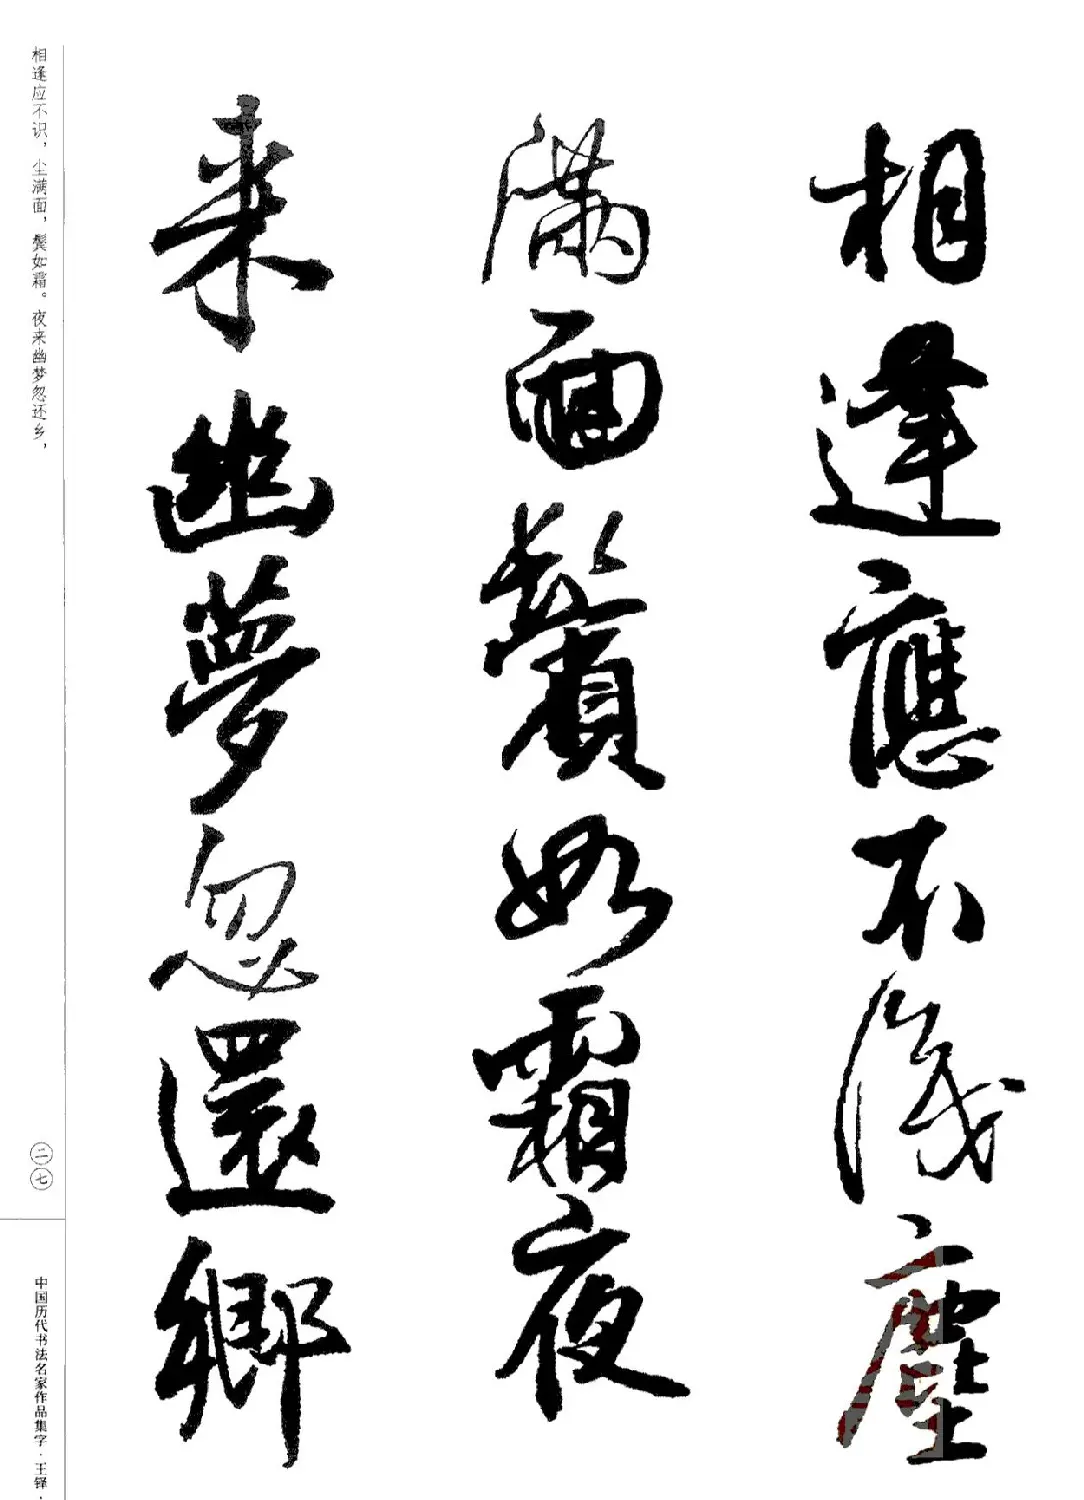 相逢應不識塵
滿面鬢如霜夜
来幽夢忽還鄉
相逢应不识，尘满面，鬓如霜。夜来幽梦忽还乡，
二七
中国历代书法名家作品集字·王铎·